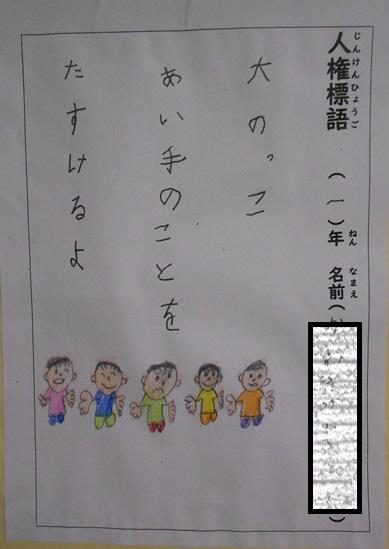 じんけんひょうご
人権標語
ねん
（一）年
なまえ
名前（
）
大のっこ
あい手のことを
たすけるよ